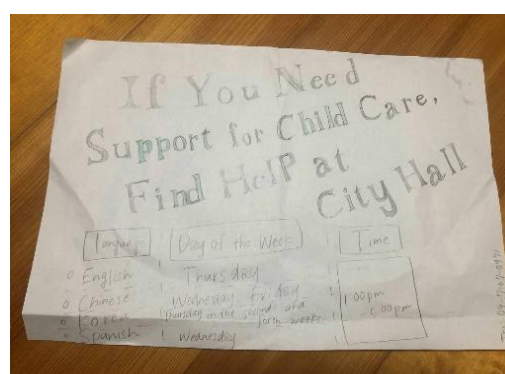 If You Need
Support for Child Care,
Find Help at
City Hall
Language Day of the Week Time
English Thursday
Chinese Wednesday Friday
Korea Thursday on the second and
forth weeks
Spanish Wednesday
1:00pm